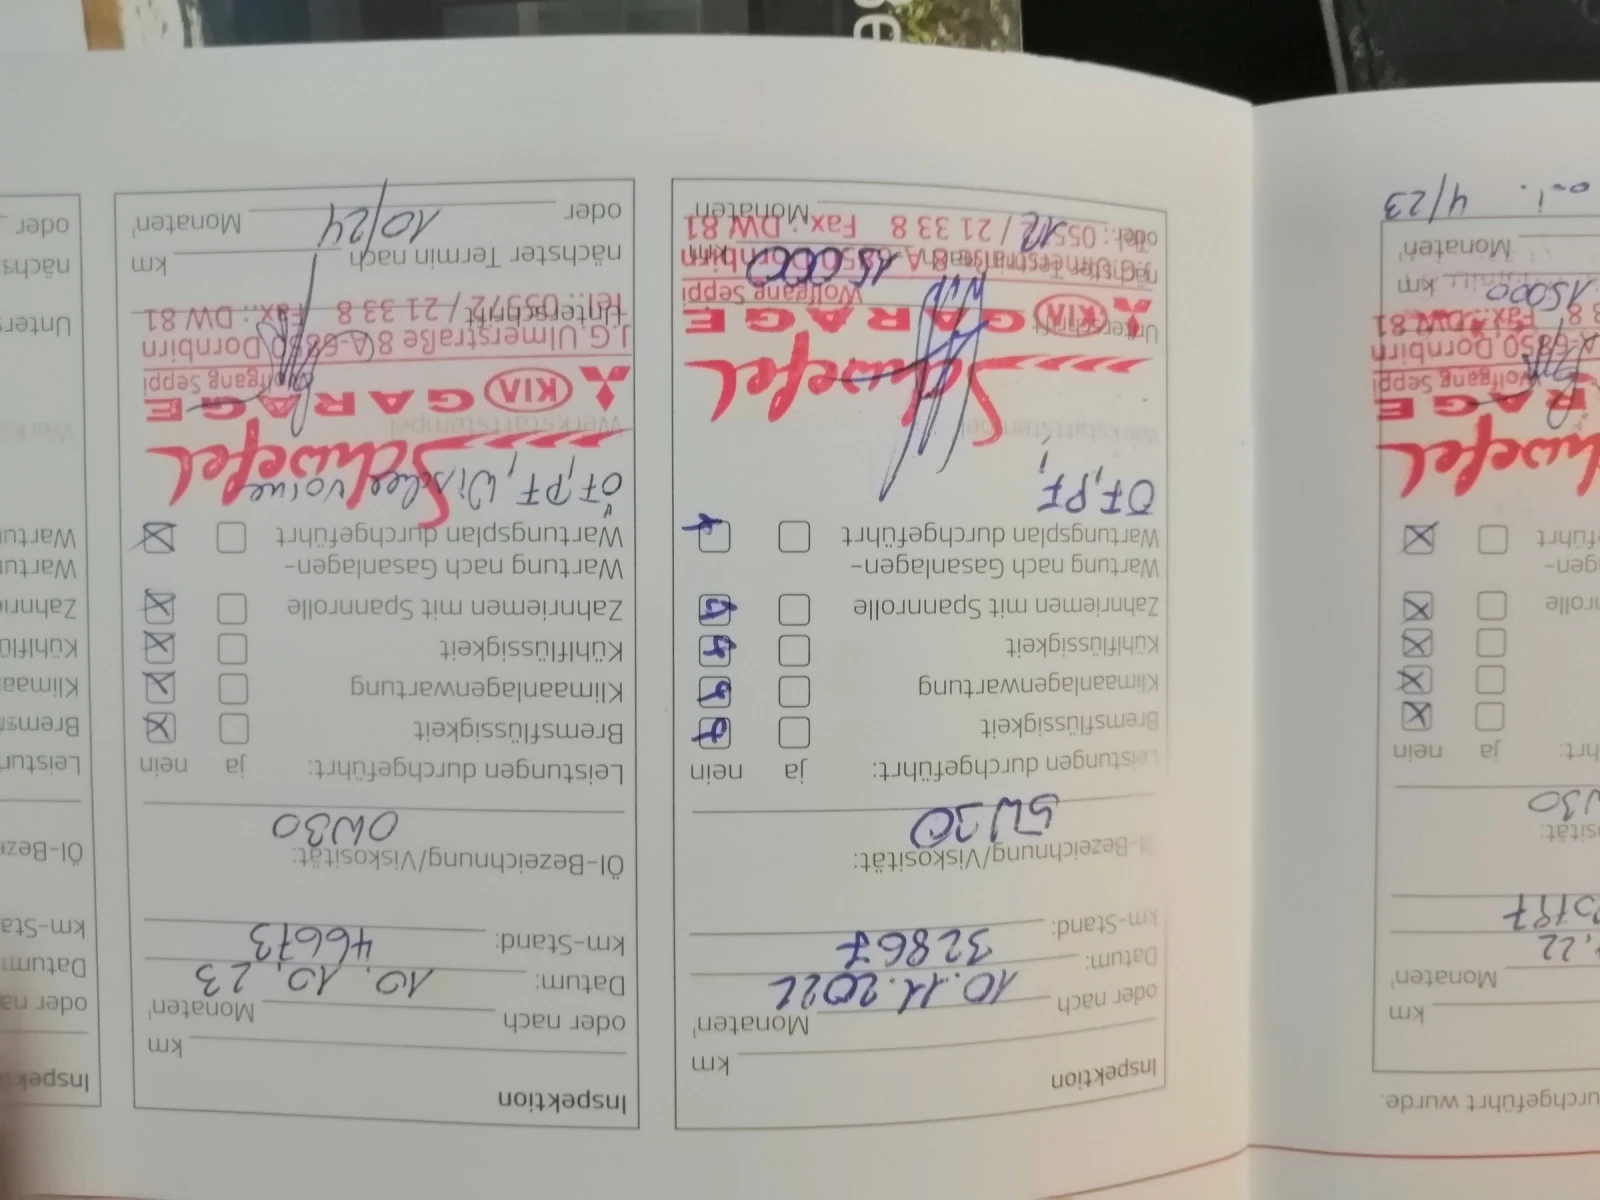 urchgeführt wurde.
km
Monaten¹
22
km
30
nein
ja
führt
gen-
nrolle
GARAGE
Wolfgang Seppi
Dornbirn
Fax.: DW 81
15000 km
Monaten¹
4/23
Inspektion
km
oder nach
Monaten¹
Datum:
10.11.2022
km-Stand:
32867
Öl-Bezeichnung/Viskosität:
5W30
Leistungen durchgeführt:
ja
nein
Bremsflüssigkeit
Klimaanlagenwartung
Kühlflüssigkeit
Zahnriemen mit Spannrolle
Wartung nach Gasanlagen-
Wartungsplan durchgeführt
ÖF, PF,
Werkstattstempel
Schwefel
KIA GARAGE
Unterschrift
Wolfgang Seppi
15000
Fax.: DW 81
oder
12
Monaten¹
Inspektion
km
oder nach
Monaten¹
Datum:
10.10.23
km-Stand:
46673
Öl-Bezeichnung/Viskosität:
0W30
Leistungen durchgeführt:
ja
nein
Bremsflüssigkeit
Klimaanlagenwartung
Kühlflüssigkeit
Zahnriemen mit Spannrolle
Wartung nach Gasanlagen-
Wartungsplan durchgeführt
ÖF, PF, Wischer vorne
Werkstattstempel
Schwefel
KIA GARAGE
Wolfgang Seppi
J.G.Ulmerstraße 8 A-6850 Dornbirn
Unterschrift
Tel.: 05572 / 21 33 8 Fax.: DW 81
nächster Termin nach
km
oder
10/24
Monaten¹
Inspektion
oder na
Datum
km-Sta
Öl-Beze
Leistun
Bremsf
Klimaa
Kühlflü
Zahnrie
Wartun
Wartun
Unters
nächs
oder